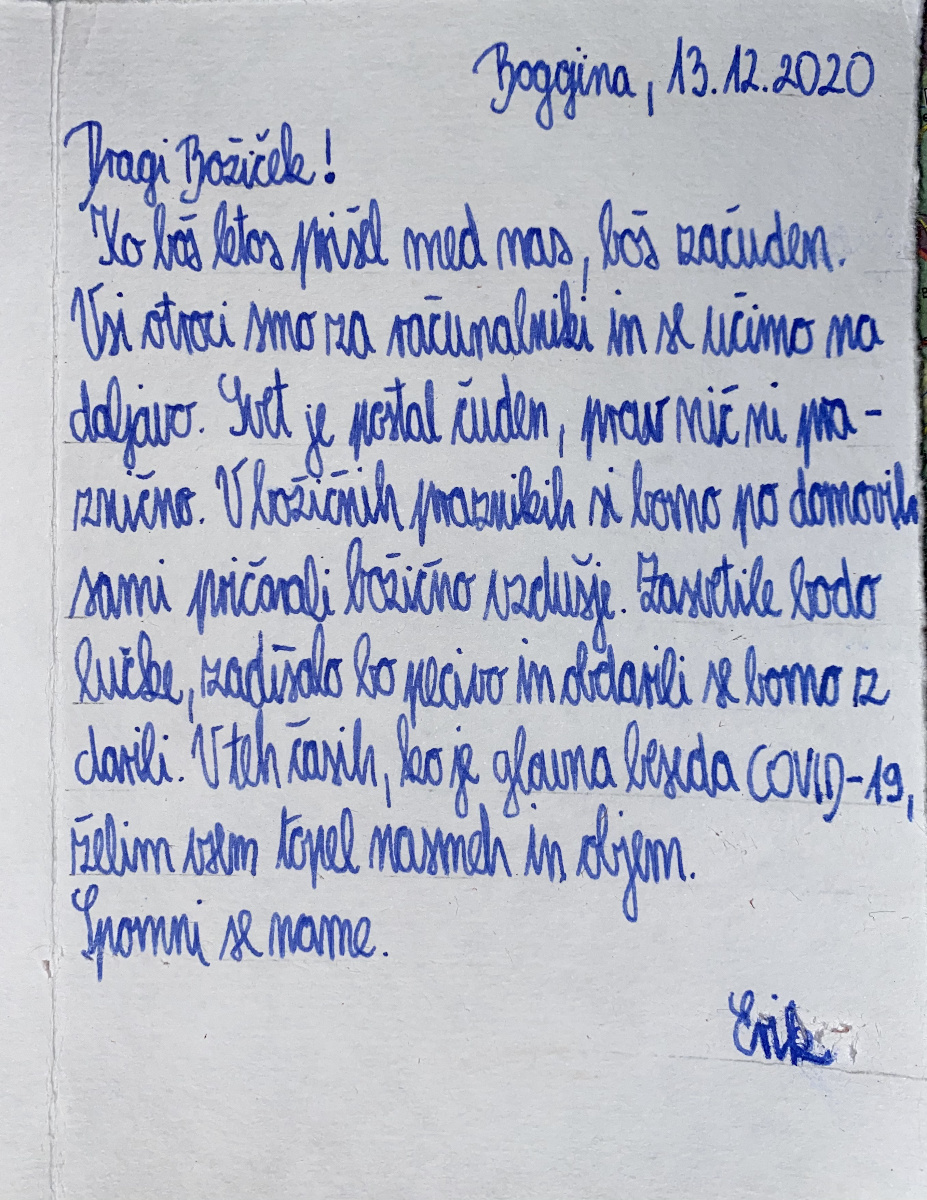 Boggina, 13.12.2020
Dragi Božiček!
Ko boš letos prišel med nas, boš začuden.
Vsi otroci smo za računalniki in se učimo na
daljavo. Svet je postal čuden, prav nič ni pra-
znično. V božičnih praznikih si bomo po domovih
sami pričarali božično vzdušje. Zasvetile bodo
lučke, zadišalo bo pecivo in obdarili se bomo z
darili. V teh časih, ko je glavna beseda COVID-19,
želim vsem topel nasmeh in objem.
Spomni se name.
Erik